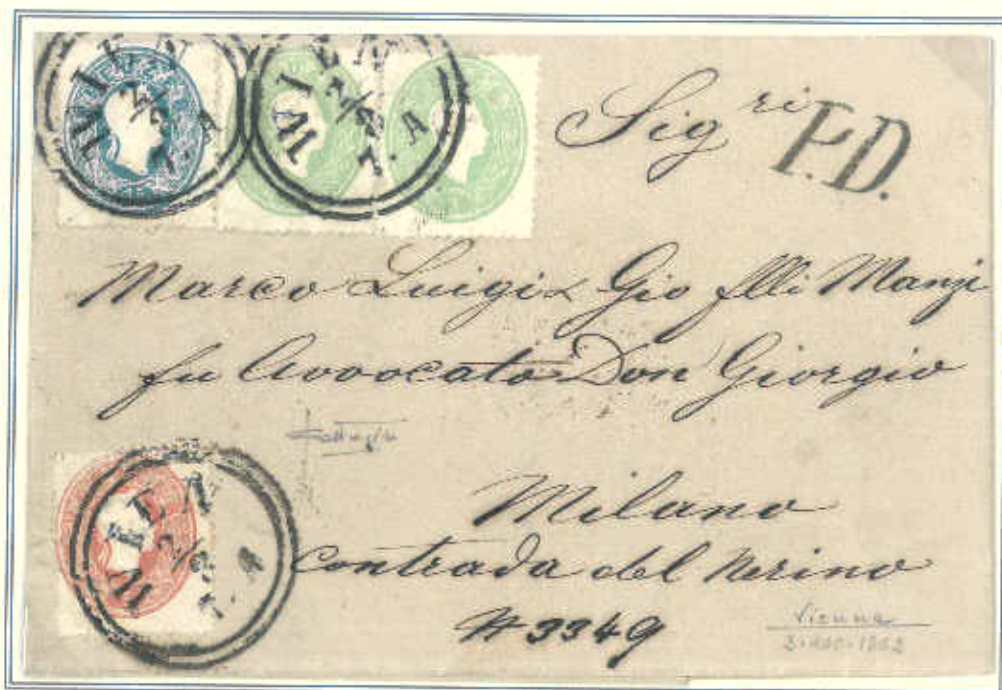 WIEN
WIEN
Sig ri
P.D.
Marco Luigi & Gio flli Manzi
fu Avvocato Don Giorgio
WIEN
Milano
Contrada del Nerino
# 3349
Vienna